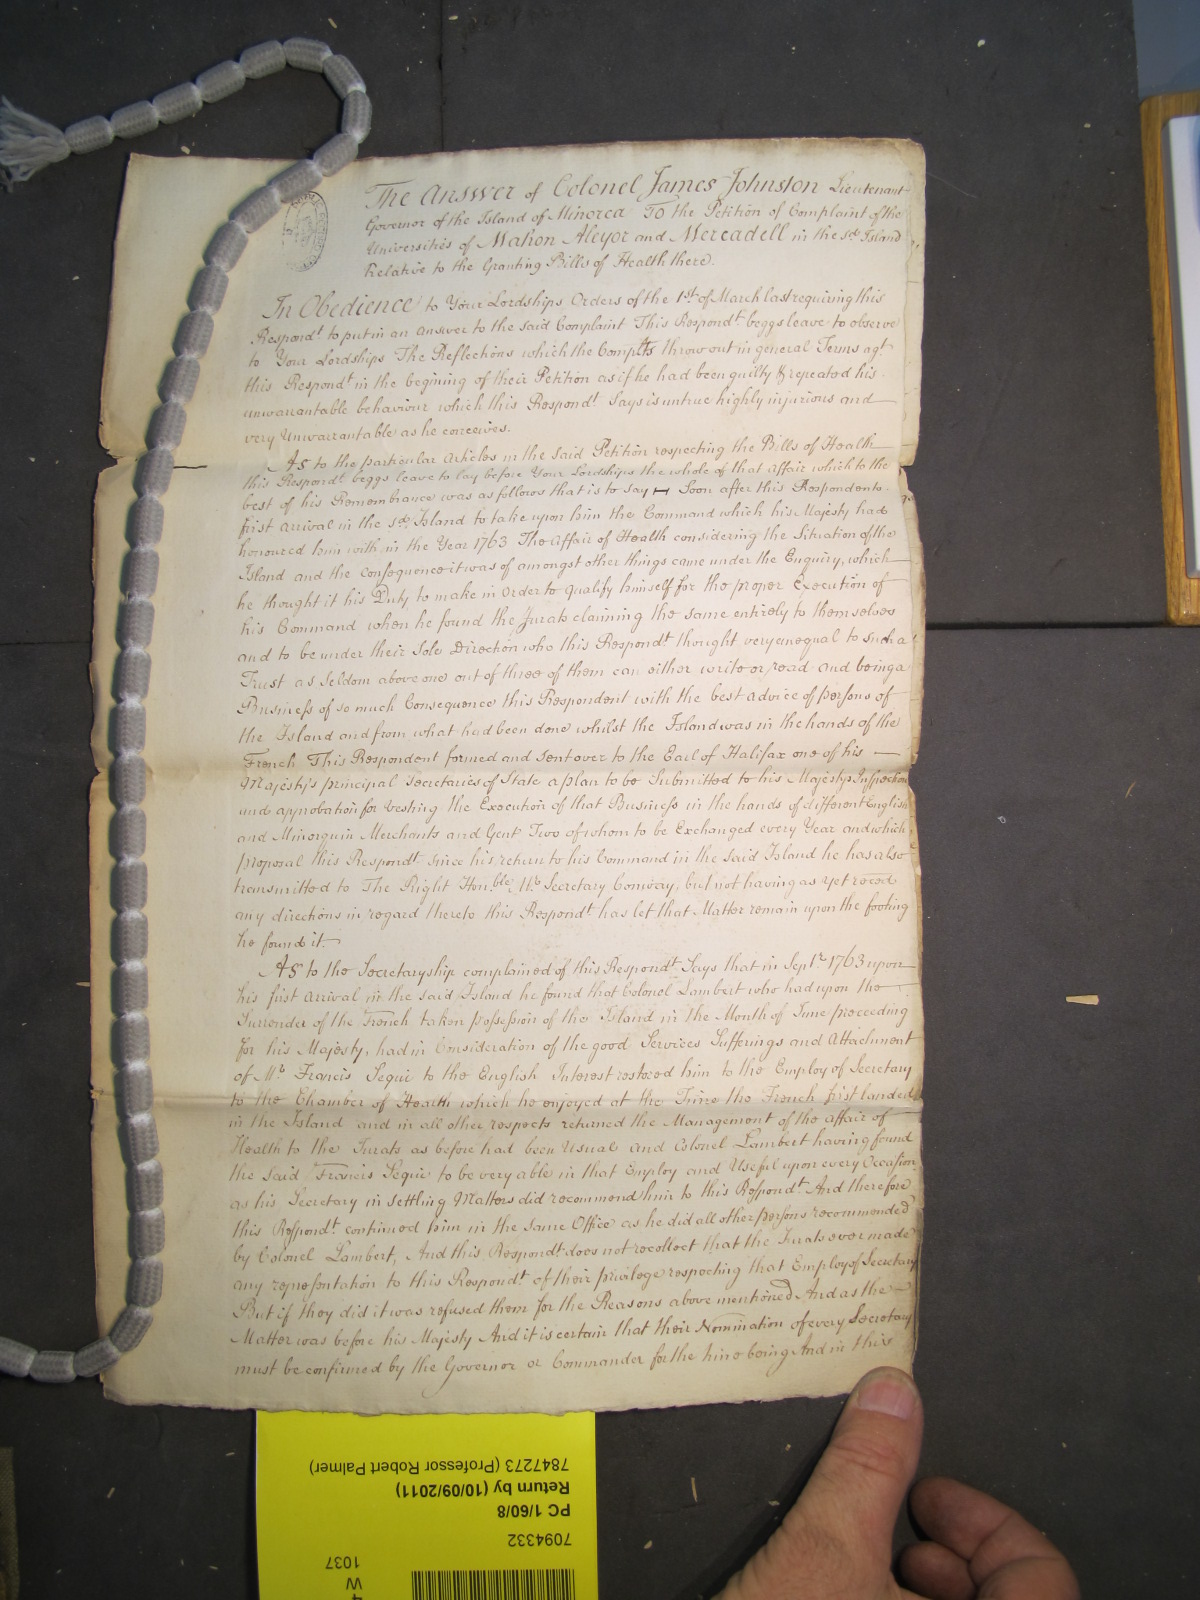 The Answer of Colonel James Johnston Lieutenant
Governor of the Island of Minorca To the Petition of Complaint of the
Universities of Mahon Aleyor and Mercadell in the sd. Island
Relative to the Granting Bills of Health there.
In Obedience to Your Lordships Orders of the 1st. of March last requiring this
Respondt. to put in an answer to the said Complaint This Respondt. beggs leave to observe
to Your Lordships The Reflections which the Complts throw out in general Terms agt.
this Respondt. in the begining of their Petition as if he had been guilty & repeated his
unwarrantable behaviour which this Respondt. Says is untrue highly injurious and
very Unwarrantable as he conceives.
As to the particular Articles in the said Petition respecting the Bills of Health
this Respondt. beggs leave to lay before Your Lordships the whole of that Affair which to the
best of his Remembrance was as follows that is to say Soon after this Respondents
first arrival in the sd. Island to take upon him the Command which his Majesty had
honoured him with in the Year 1763 The Affair of Health considering the Situation of the
Island and the Consequence it was of amongst other things came under the Enquiry, which
he thought it his Duty to make in Order to qualify himself for the proper Execution of
his Command when he found the Jurats claiming the same entirely to themselves
and to be under their Sole Direction who this Respondt. thought very unequal to such a
Trust as Seldom above one out of three of them can either write or read and being a
Business of so much Consequence this Respondent with the best advice of persons of
the Island and from what had been done whilst the Island was in the hands of the
French This Respondent formed and sent over to the Earl of Halifax one of his
Majesty's principal Secretaries of State a plan to be Submitted to his Majestys Inspection
and approbation for vesting the Execution of that Business in the hands of different English
and Minorquin Merchants and Gent Two of whom to be Exchanged every Year and which
proposal this Respondt. since his return to his Command in the said Island he has also
transmitted to The Right Honble. Mr. Secretary Conway, but not having as yet reced
any directions in regard thereto this Respondt. has let that Matter remain upon the footing
he found it.
As to the Secretaryship complained of this Respondt. Says that in Sepr. 1763 upon
his first arrival in the said Island he found that Colonel Lambert who had upon the
Surrender of the French taken possession of the Island in the Month of June preceeding
for his Majesty, had in Consideration of the good Services Sufferings and Attachment
of Mr. Francis Sequi to the English Interest restored him to the Employ of Secretary
to the Chamber of Health which he enjoyed at the Time the French first landed
in the Island and in all other respects returned the Management of the affair of
Health to the Jurats as before had been Usual and Colonel Lambert having found
the said Francis Sequi to be very able in that Employ and Useful upon every Occasion
as his Secretary in settling Matters did recommend him to this Respondt. And therefore
this Respondt. continued him in the same Office as he did all other persons recommended
by Colonel Lambert, And this Respondt. does not recollect that the Jurats ever made
any representation to this Respondt. of their privilege respecting that Employ of Secretary
But if they did it was refused them for the Reasons above mentioned And as the
Matter was before his Majesty And it is certain that their Nomination of every Secretary
must be confirmed by the Governor or Commander for the time being And in this
7847273 (Professor Robert Palmer)
Return by (10/09/2011)
PC 1/60/8
7094332
1037
W